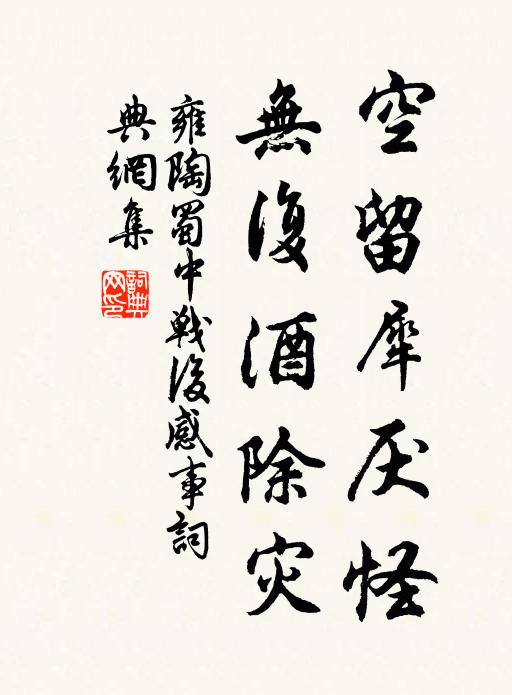 空留犀厌怪
無復酒除灾
雍陶蜀中戰後感事詞
典網集
詞典网印